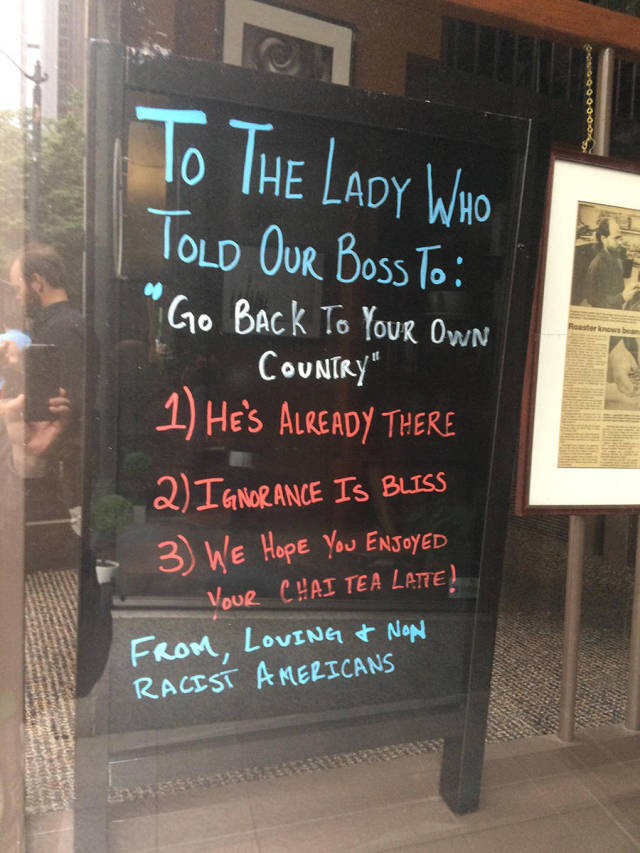 To The Lady Who
Told Our Boss To:
"Go Back To Your Own
Country"
1) He's Already There
2) Ignorance Is Bliss
3) We Hope You Enjoyed
Your Chai Tea Latte!
From, Loving + Non
Racist Americans
Roaster knows